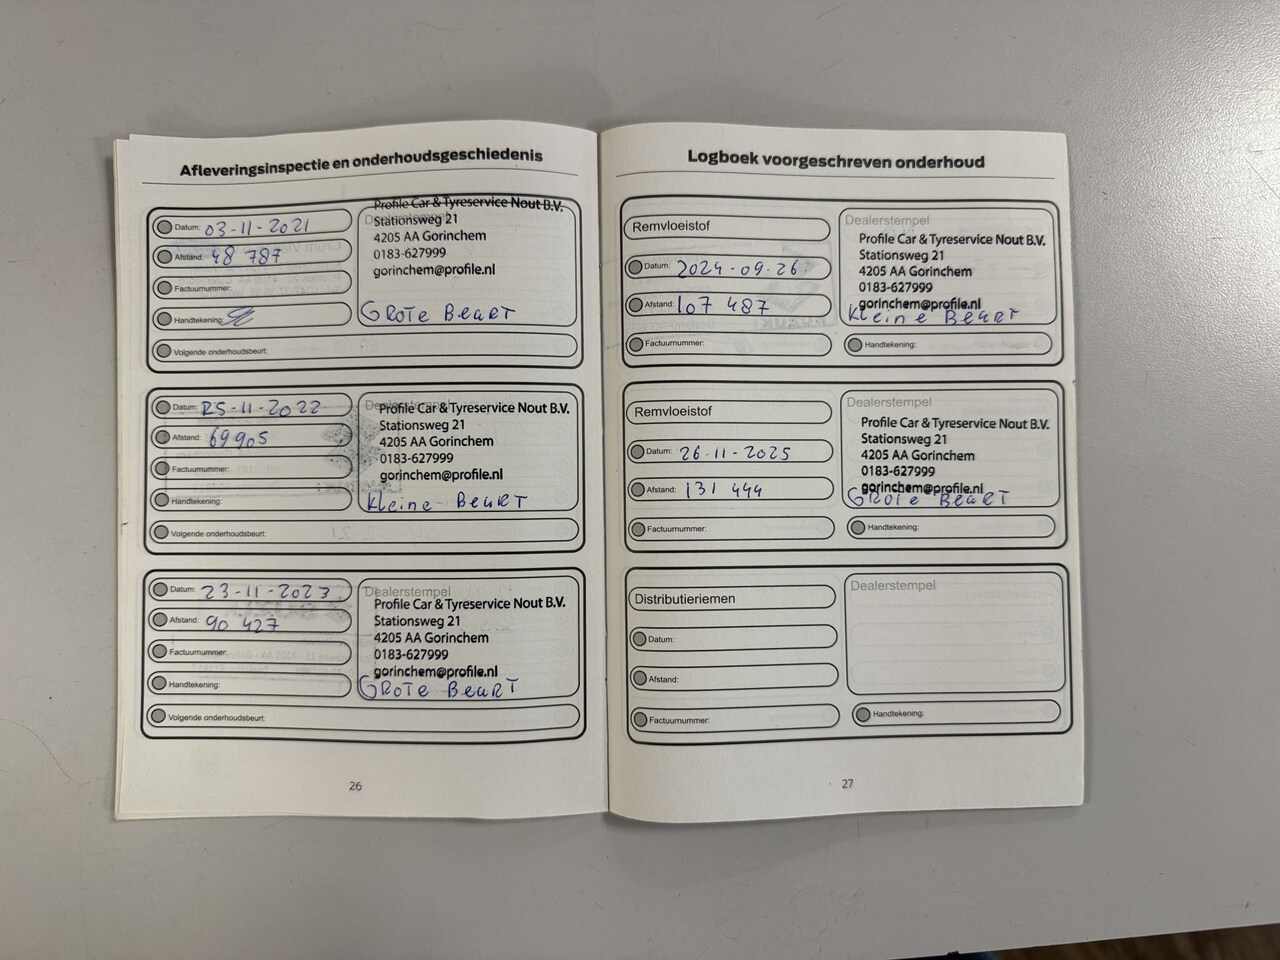 Afleveringsinspectie en onderhoudsgeschiedenis
Datum: 03-11-2021
Afstand: 48 787
Factuurnummer:
Handtekening:
Volgende onderhoudsbeurt:
Profile Car & Tyreservice Nout B.V.
Stationsweg 21
4205 AA Gorinchem
0183-627999
gorinchem@profile.nl
GROTE BEURT
Datum: 25-11-2022
Afstand: 69905
Factuurnummer:
Handtekening:
Volgende onderhoudsbeurt:
Profile Car & Tyreservice Nout B.V.
Stationsweg 21
4205 AA Gorinchem
0183-627999
gorinchem@profile.nl
Kleine BeuRT
Datum: 23-11-2023
Afstand: 90 427
Factuurnummer:
Handtekening:
Volgende onderhoudsbeurt:
Dealerstempel
Profile Car & Tyreservice Nout B.V.
Stationsweg 21
4205 AA Gorinchem
0183-627999
gorinchem@profile.nl
GROTe BeuRT
26
Logboek voorgeschreven onderhoud
Remvloeistof
Datum: 2024-09-26
Afstand: 107 487
Factuurnummer:
Dealerstempel
Profile Car & Tyreservice Nout B.V.
Stationsweg 21
4205 AA Gorinchem
0183-627999
gorinchem@profile.nl
Kleine BeuRT
Handtekening:
Remvloeistof
Datum: 26-11-2025
Afstand: 131 444
Factuurnummer:
Dealerstempel
Profile Car & Tyreservice Nout B.V.
Stationsweg 21
4205 AA Gorinchem
0183-627999
gorinchem@profile.nl
GROTe BeuRT
Handtekening:
Distributieriemen
Datum:
Afstand:
Factuurnummer:
Dealerstempel
Handtekening:
27